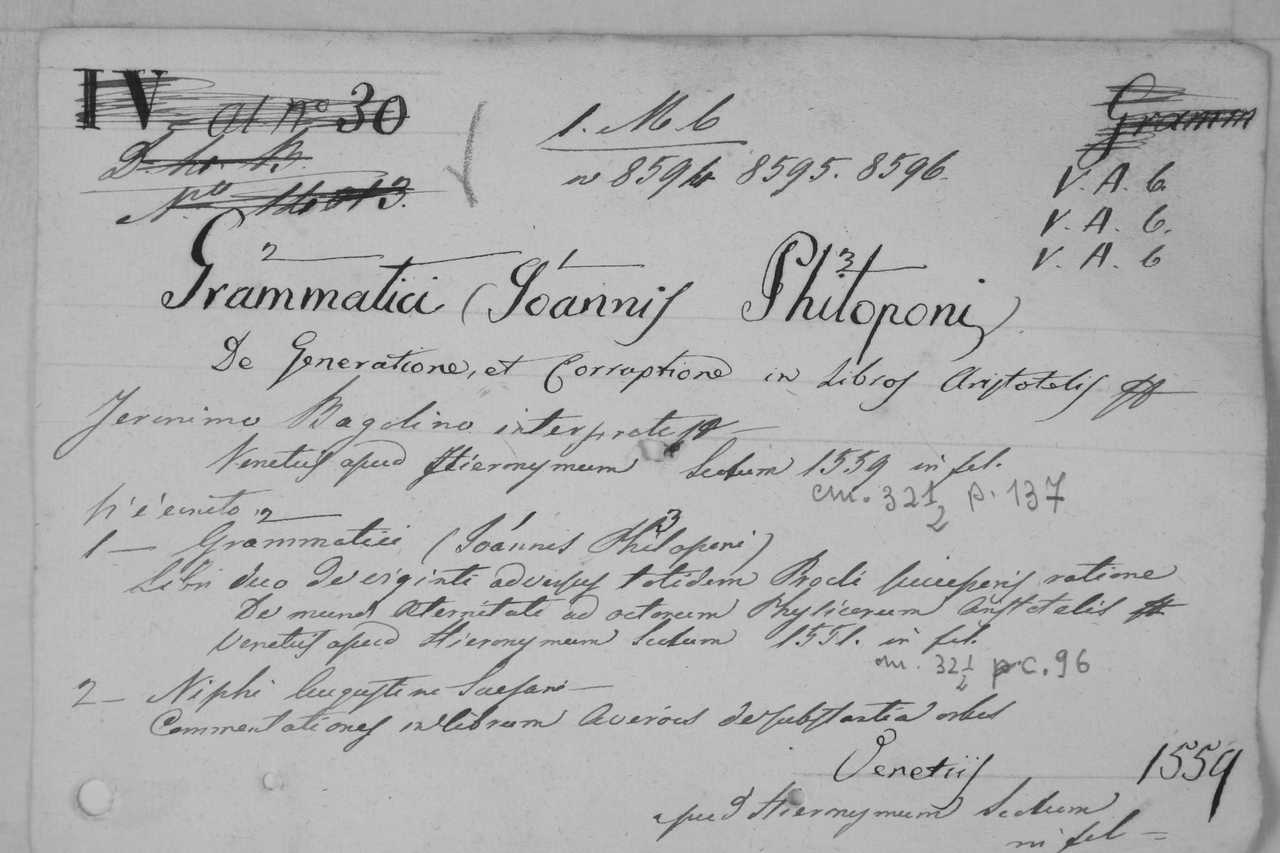 IV al nº 30
1. M 6
Gramm
nº 8594 8595. 8596.
V. A. 6
Nº 14013.
V. A. 6.
V. A. 6
2 1 3
Grammatici (Ioannis Philoponi)
De Generatione, et Corruptione in Libros Aristotelis
Jeronimo Bagolino interprete
Venetiis apud Hieronymum Scotum 1559 in fol.
cm. 32½ p. 137
Vi è unito
2 1 3
1 — Grammatici (Ioannis Philoponi)
Libri duo de viginti adversus totidem Procli successoris ratione
De mundi Aternitate ad octorum Physicorum Aristotelis
Venetiis apud Hieronymum Scotum 1551. in fol.
cm. 32½ p c. 96
2 — Niphi Augustini Suessani —
Commentationes in librum Averois de substantia orbis
Venetiis 1559
apud Hieronymum Scotum
in fol —